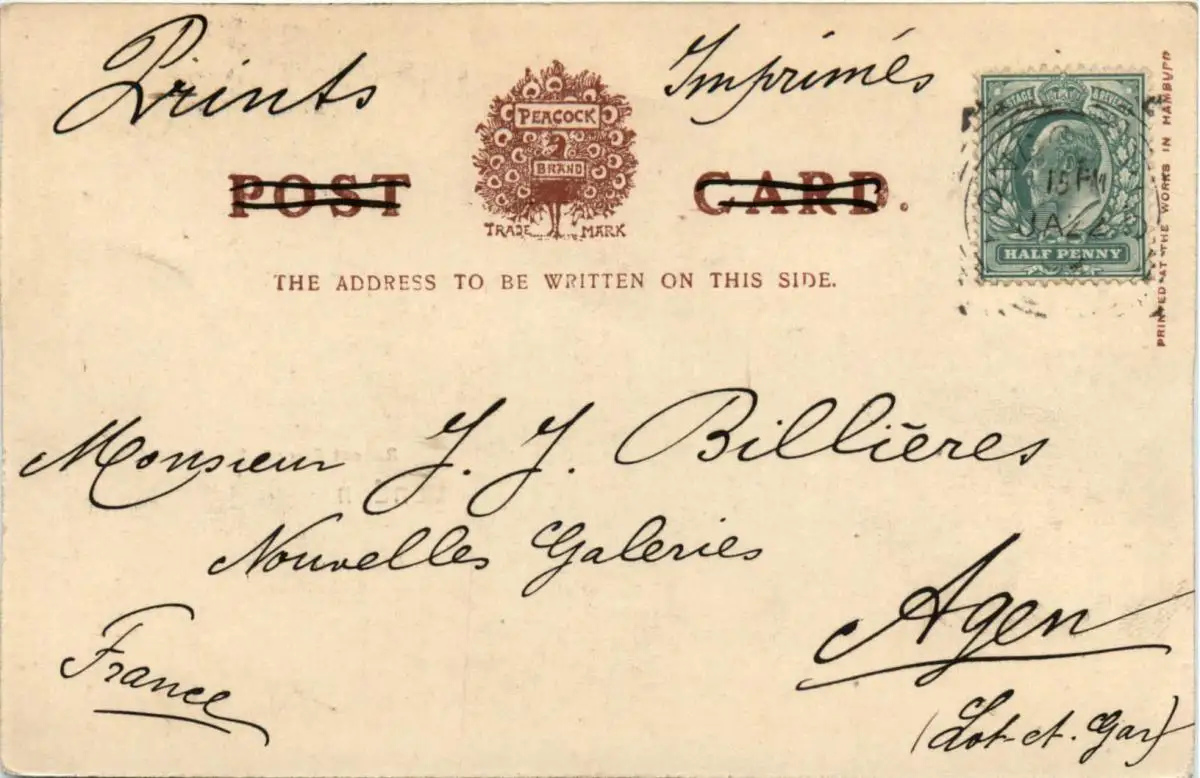 Prints
Imprimés
PEACOCK
BRAND
TRADE MARK
POST CARD.
THE ADDRESS TO BE WRITTEN ON THIS SIDE.
POSTAGE & REVENUE
15 PM
JA 22
HALF PENNY
PRINTED AT THE WORKS IN HAMBURG
Monsieur J. J. Billières
Nouvelles Galeries
Agen
France
(Lot-et-Gar)